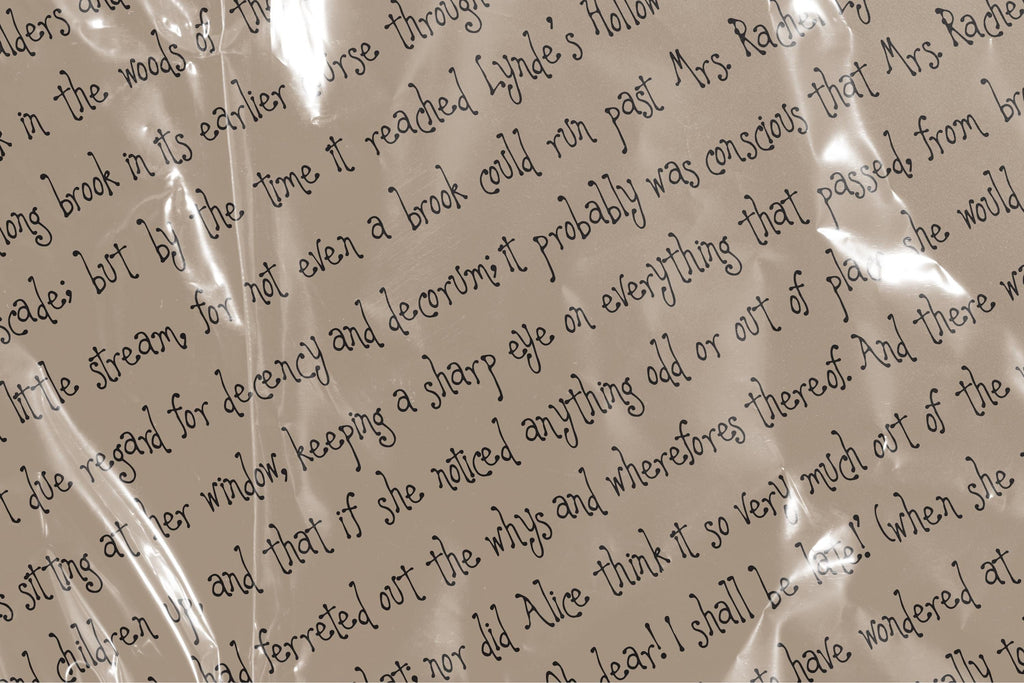 lders and
in the woods of th
long brook in its earlier ourse through
scade; but by the time it reached Lynde's Hollow
little stream, for not even a brook could run past Mrs. Rachel Ly
t due regard for decency and decorum; it probably was conscious that Mrs. Rache
s sitting at her window, keeping a sharp eye on everything that passed, from br
nd children up, and that if she noticed anything odd or out of place she would
had ferreted out the whys and wherefores thereof. And there wa
hat; nor did Alice think it so very much out of the
Oh dear! I shall be late!' (when she
to have wondered at
ally to